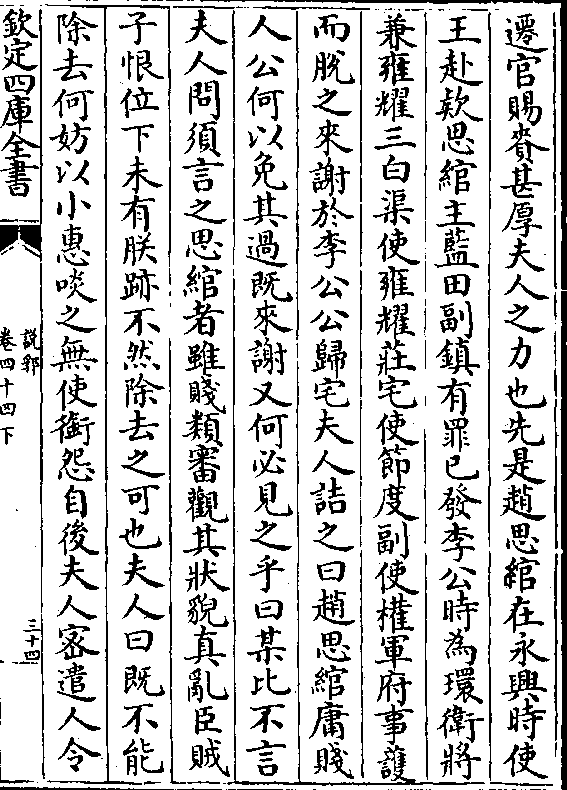 遷官賜賚甚厚夫人之力也先是趙思綰在永興時使
王赴欵思綰主藍田副鎮有罪已發李公時為環衛將
兼雍耀三白渠使雍耀莊宅使節度副使權軍府事護
而脫之來謝於李公公歸宅夫人詰之曰趙思綰庸賤
人公何以免其過既來謝又何必見之乎曰某比不言
夫人問須言之思綰者雖賤類審觀其狀貌真亂臣賊
子恨位下未有朕跡不然除去之可也夫人曰既不能
除去何妨以小惠啖之無使銜怨自後夫人密遣人令
欽定四庫全書
說郛
卷四十四下
三十四